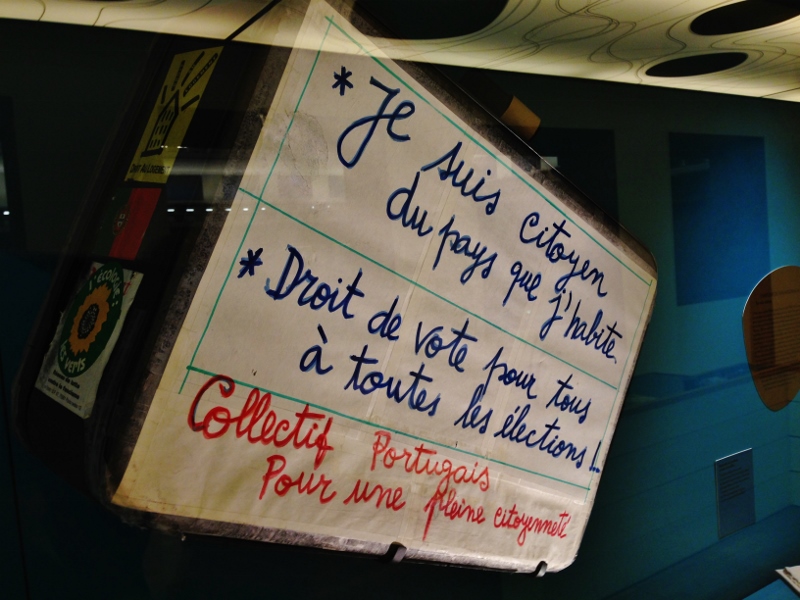 * Je suis citoyen
du pays que j'habite.
* Droit de vote pour tous
à toutes les élections !
Collectif Portugais
Pour une pleine citoyenneté
l'écologie :
les verts